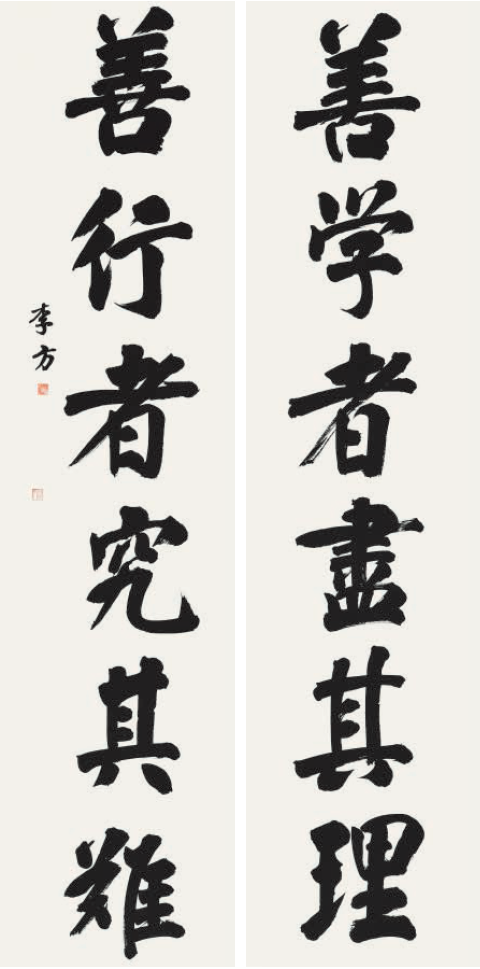 善学者盡其理
善行者究其難
李方